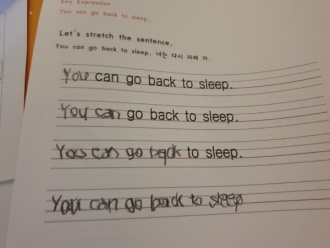 Key Expression
You can go back to sleep.
Let's stretch the sentence.
You can go back to sleep. 너는 다시 자러 가.
You can go back to sleep.
You can go back to sleep.
You can go back to sleep.
You can go back to sleep